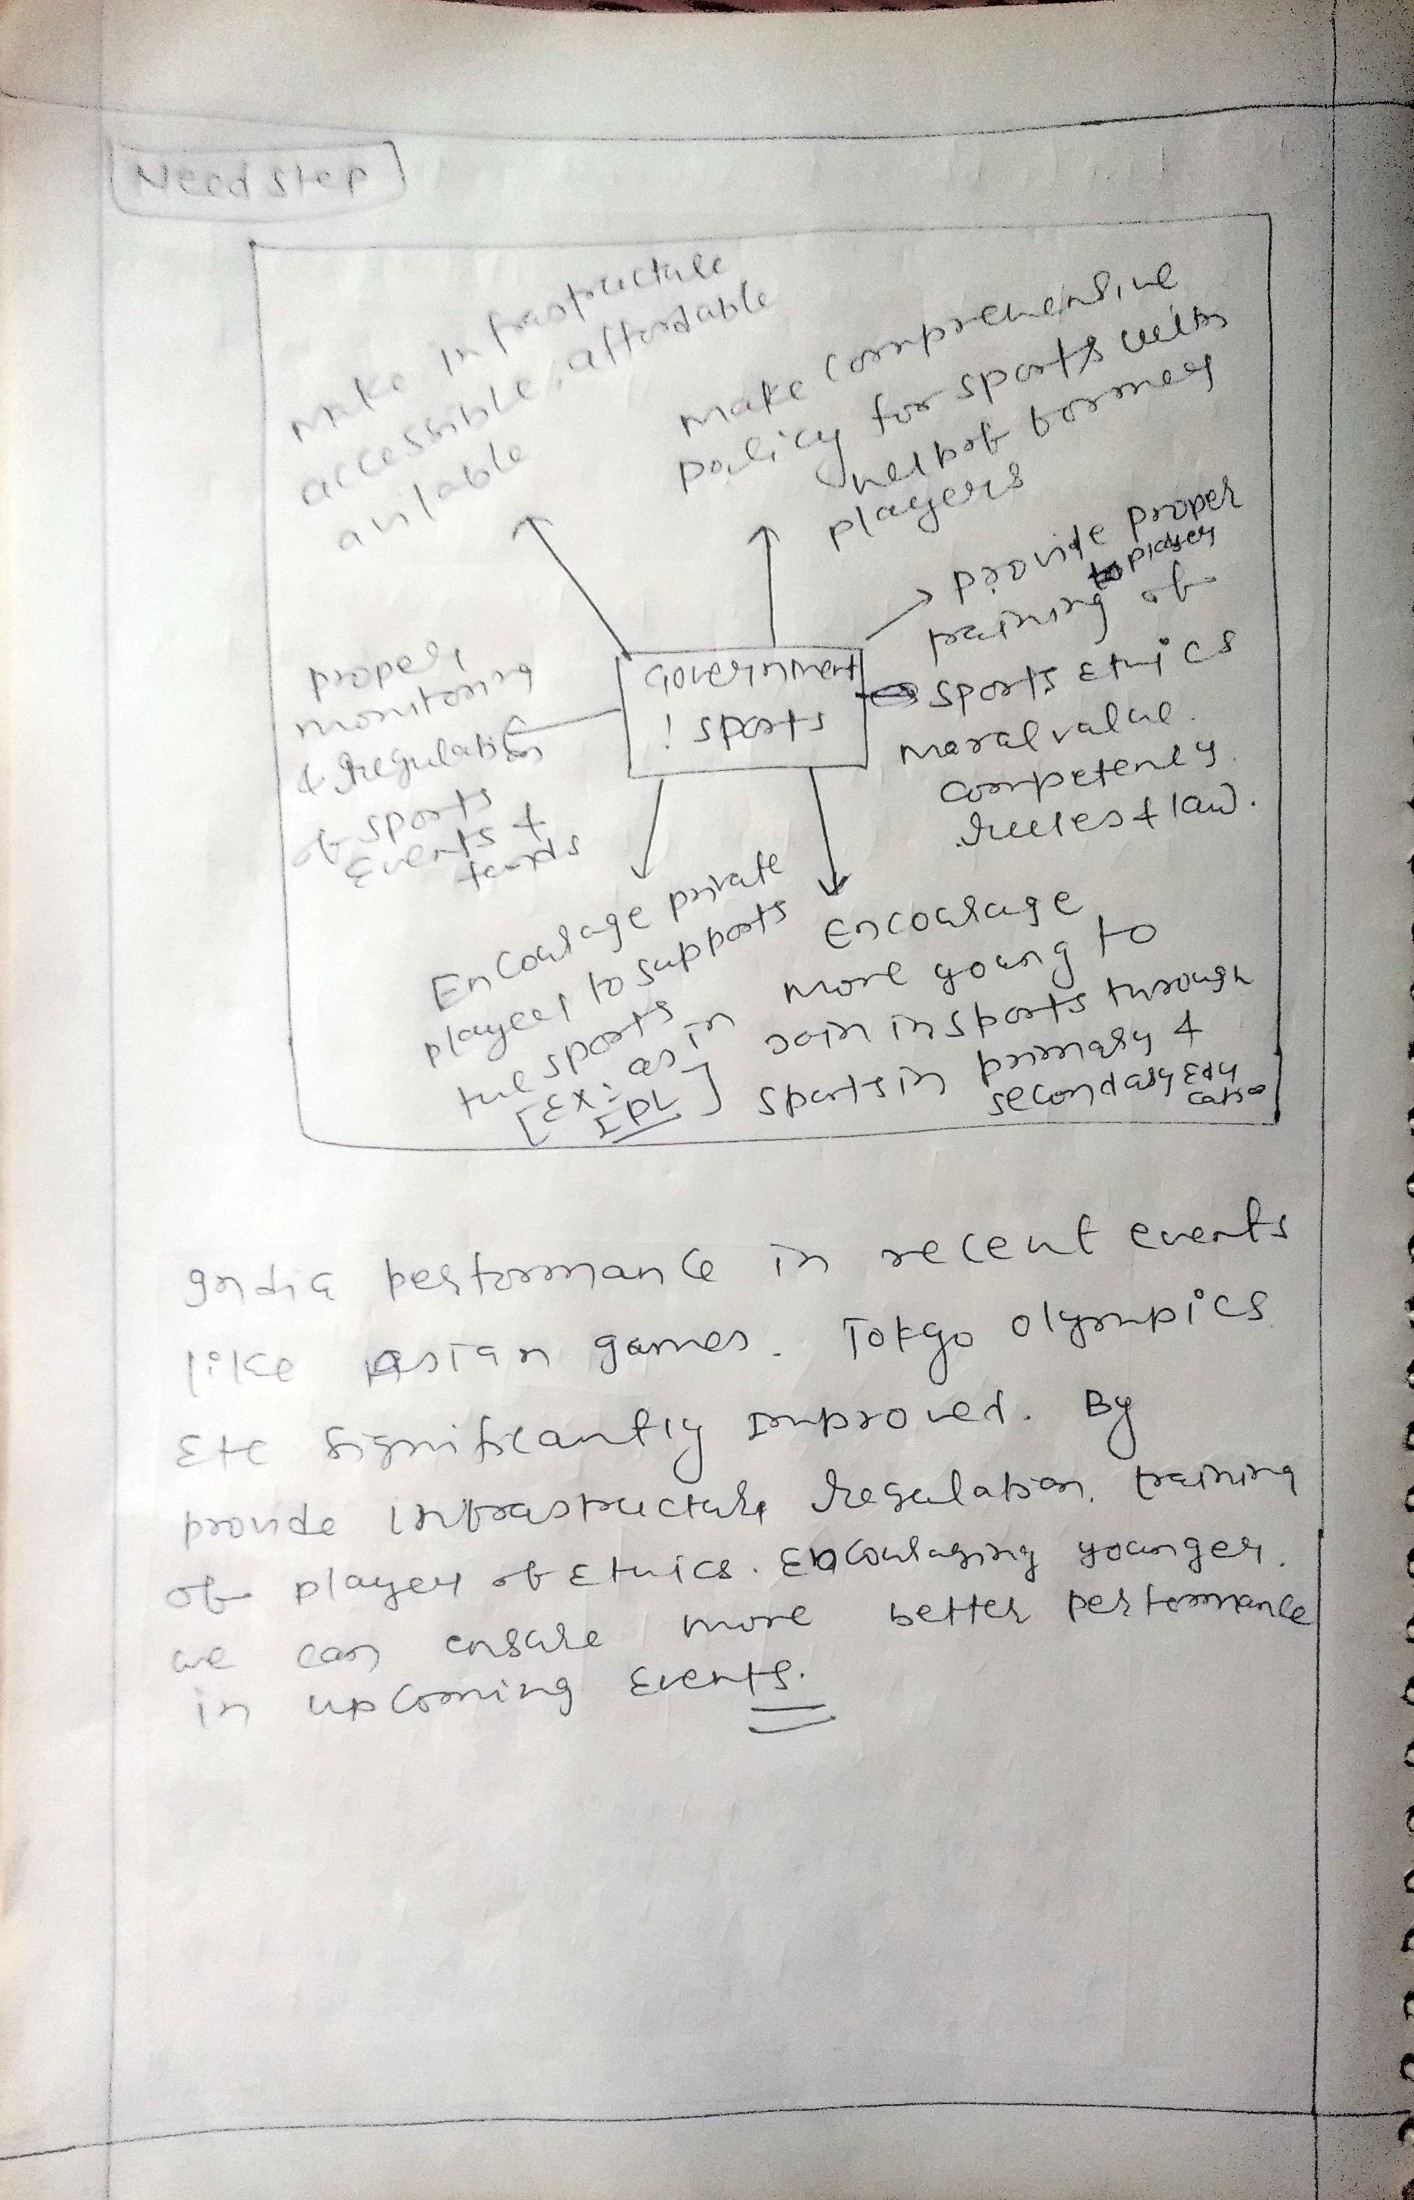 Need step
Make infrastructure
accessible, affordable
available
Make comprehensive
policy for sports with
help of former
players
provide proper
training to player of
sports Ethics
moral value.
competency.
rules & law.
Government
! sports
proper
monitoring
& regulation
of sports
Events &
funds
Encourage private
player to supports
the sports
[Ex: as in
IPL]
Encourage
more young to
join in sports through
sports in primary &
secondary Edu
cation
India performance in recent events
like Asian games. Tokyo Olympics
Etc significantly Improved. By
provide infrastructure regulation, training
of player of Ethics. Encouraging younger.
we can ensure more better performance
in upcoming Events.